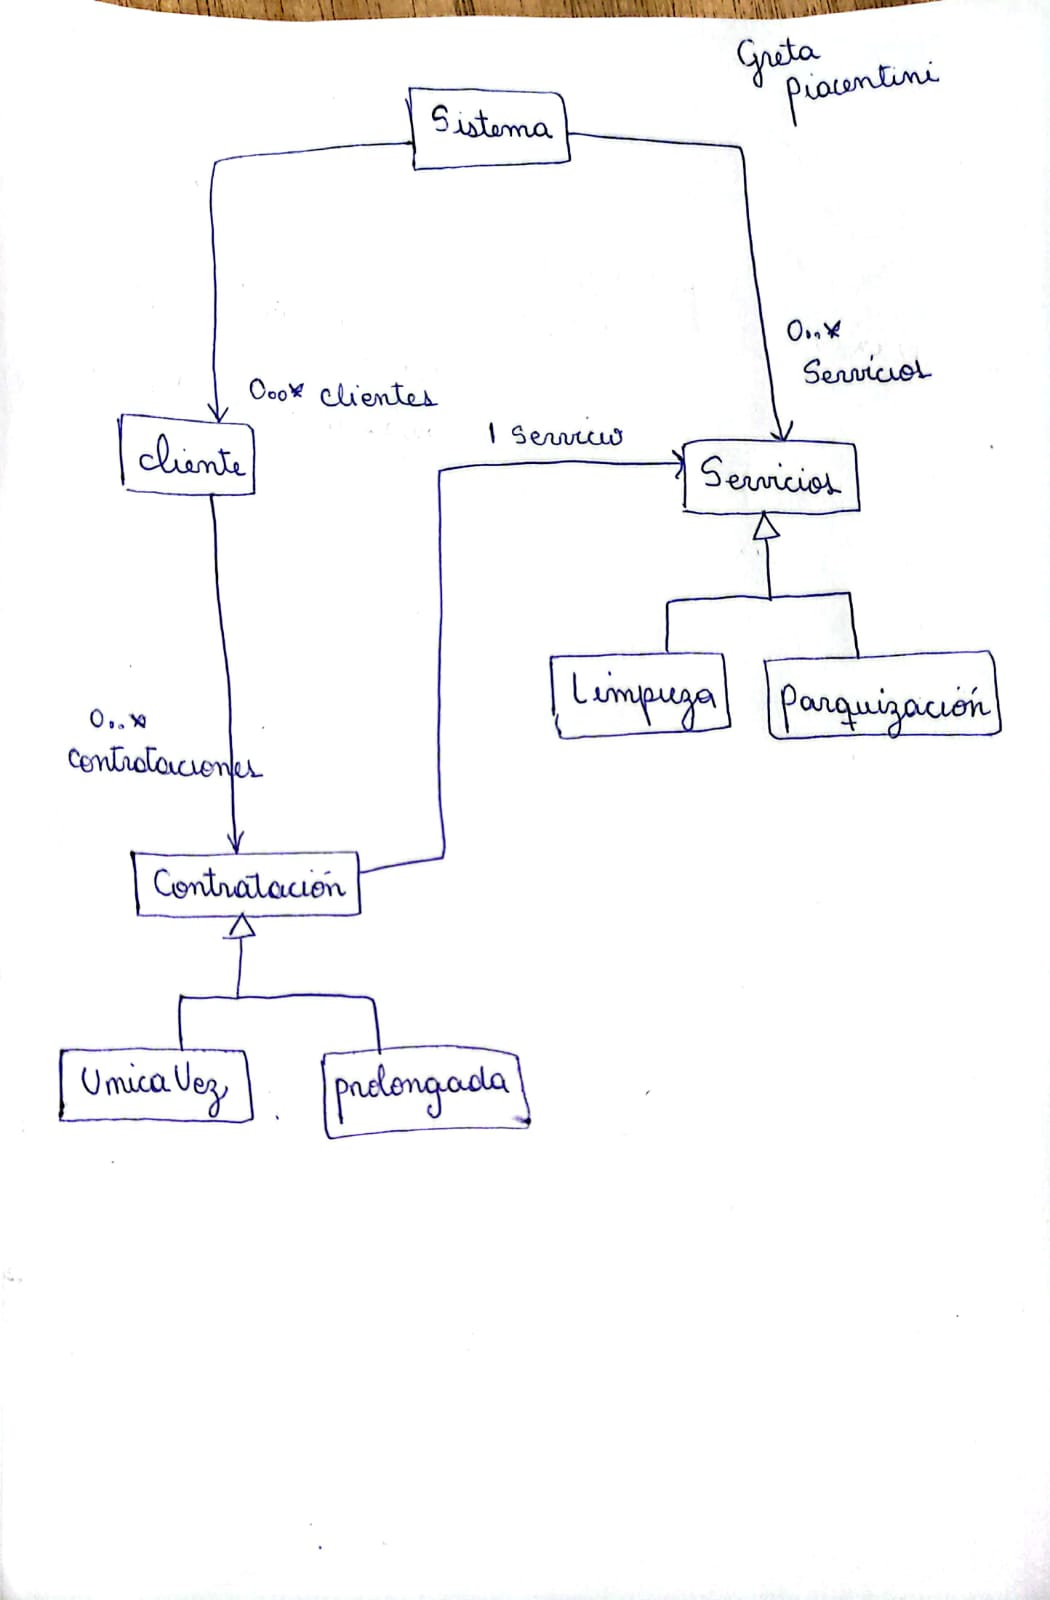 Greta
Piacentini
Sistema
0..*
Servicios
0..* clientes
1 Servicio
cliente
Servicios
Limpieza
Parquización
0..*
contrataciones
Contratación
UnicaVez
prolongada